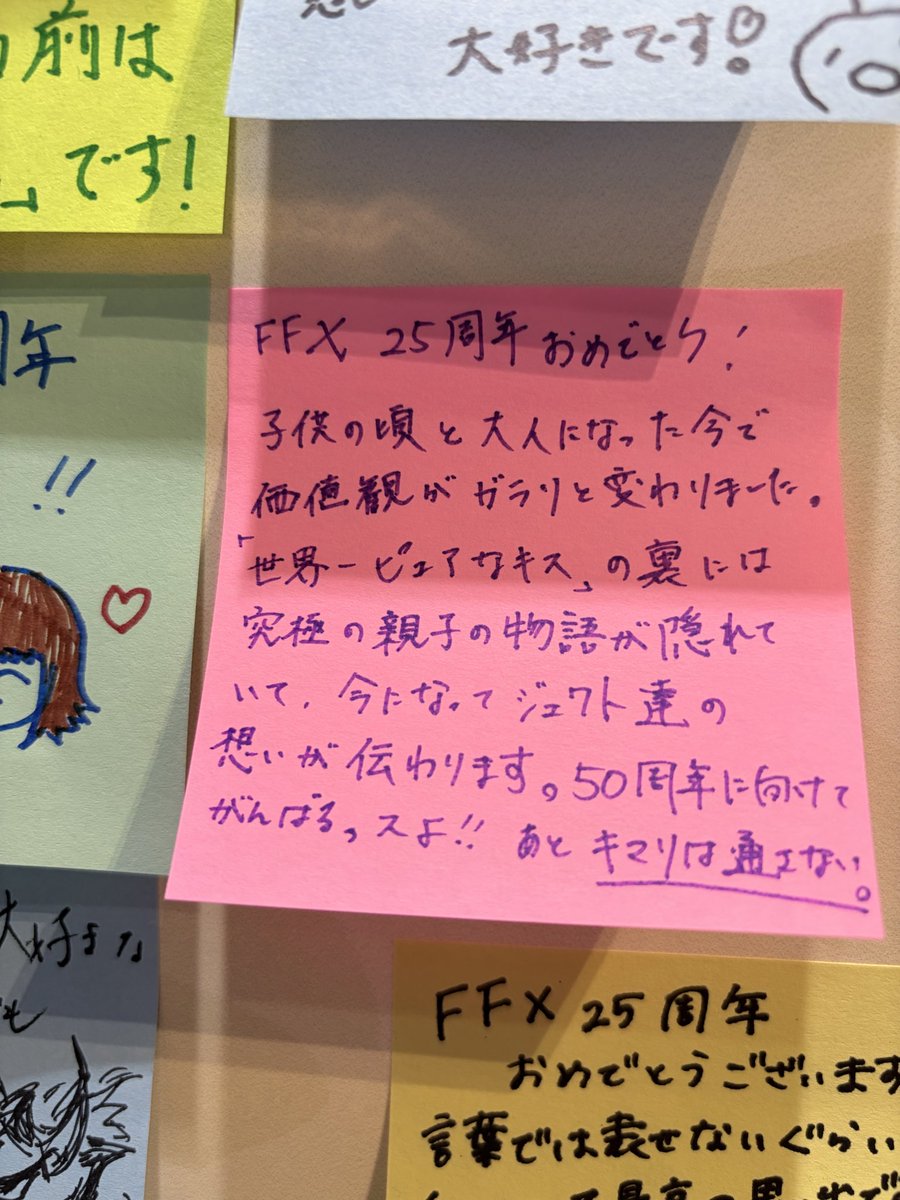 前は
」です!
大好きです!
周年
!!
FFX 25周年 おめでとう!
子供の頃と大人になった今で
価値観がガラリと変わりました。
「世界一ピュアなキス」の裏には
究極の親子の物語が隠れて
いて、今になってジェクト達の
想いが伝わります。50周年に向けて
がんばるっスよ!!
あと キマリは通さない。
大好きな
も
FFX 25周年
おめでとうございます
言葉では表せないぐらい